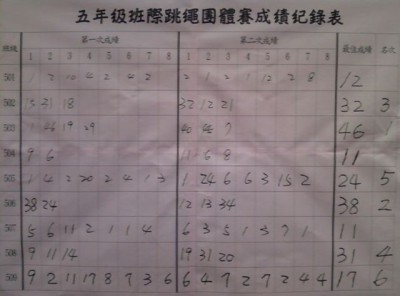 五年級班際跳繩團體賽成績紀錄表
班級 第一次成績 第二次成績 最佳成績 名次
1 2 3 4 5 6 7 8 1 2 3 4 5 6 7 8
501 1 2 10 4 2 4 2 2 1 2 1 12 2 8 12
502 15 31 18 32 12 21 32 3
503 1 46 19 29 40 46 7 46 1
504 9 6 11 6 8 11
505 1 4 2 20 2 4 1 3 1 24 6 6 3 15 2 24 5
506 38 24 12 13 34 38 2
507 5 6 11 2 1 1 4 6 3 5 1 5 7 1 11
508 9 11 14 19 31 20 31 4
509 9 2 11 17 8 7 3 6 6 4 7 2 7 2 4 4 17 6